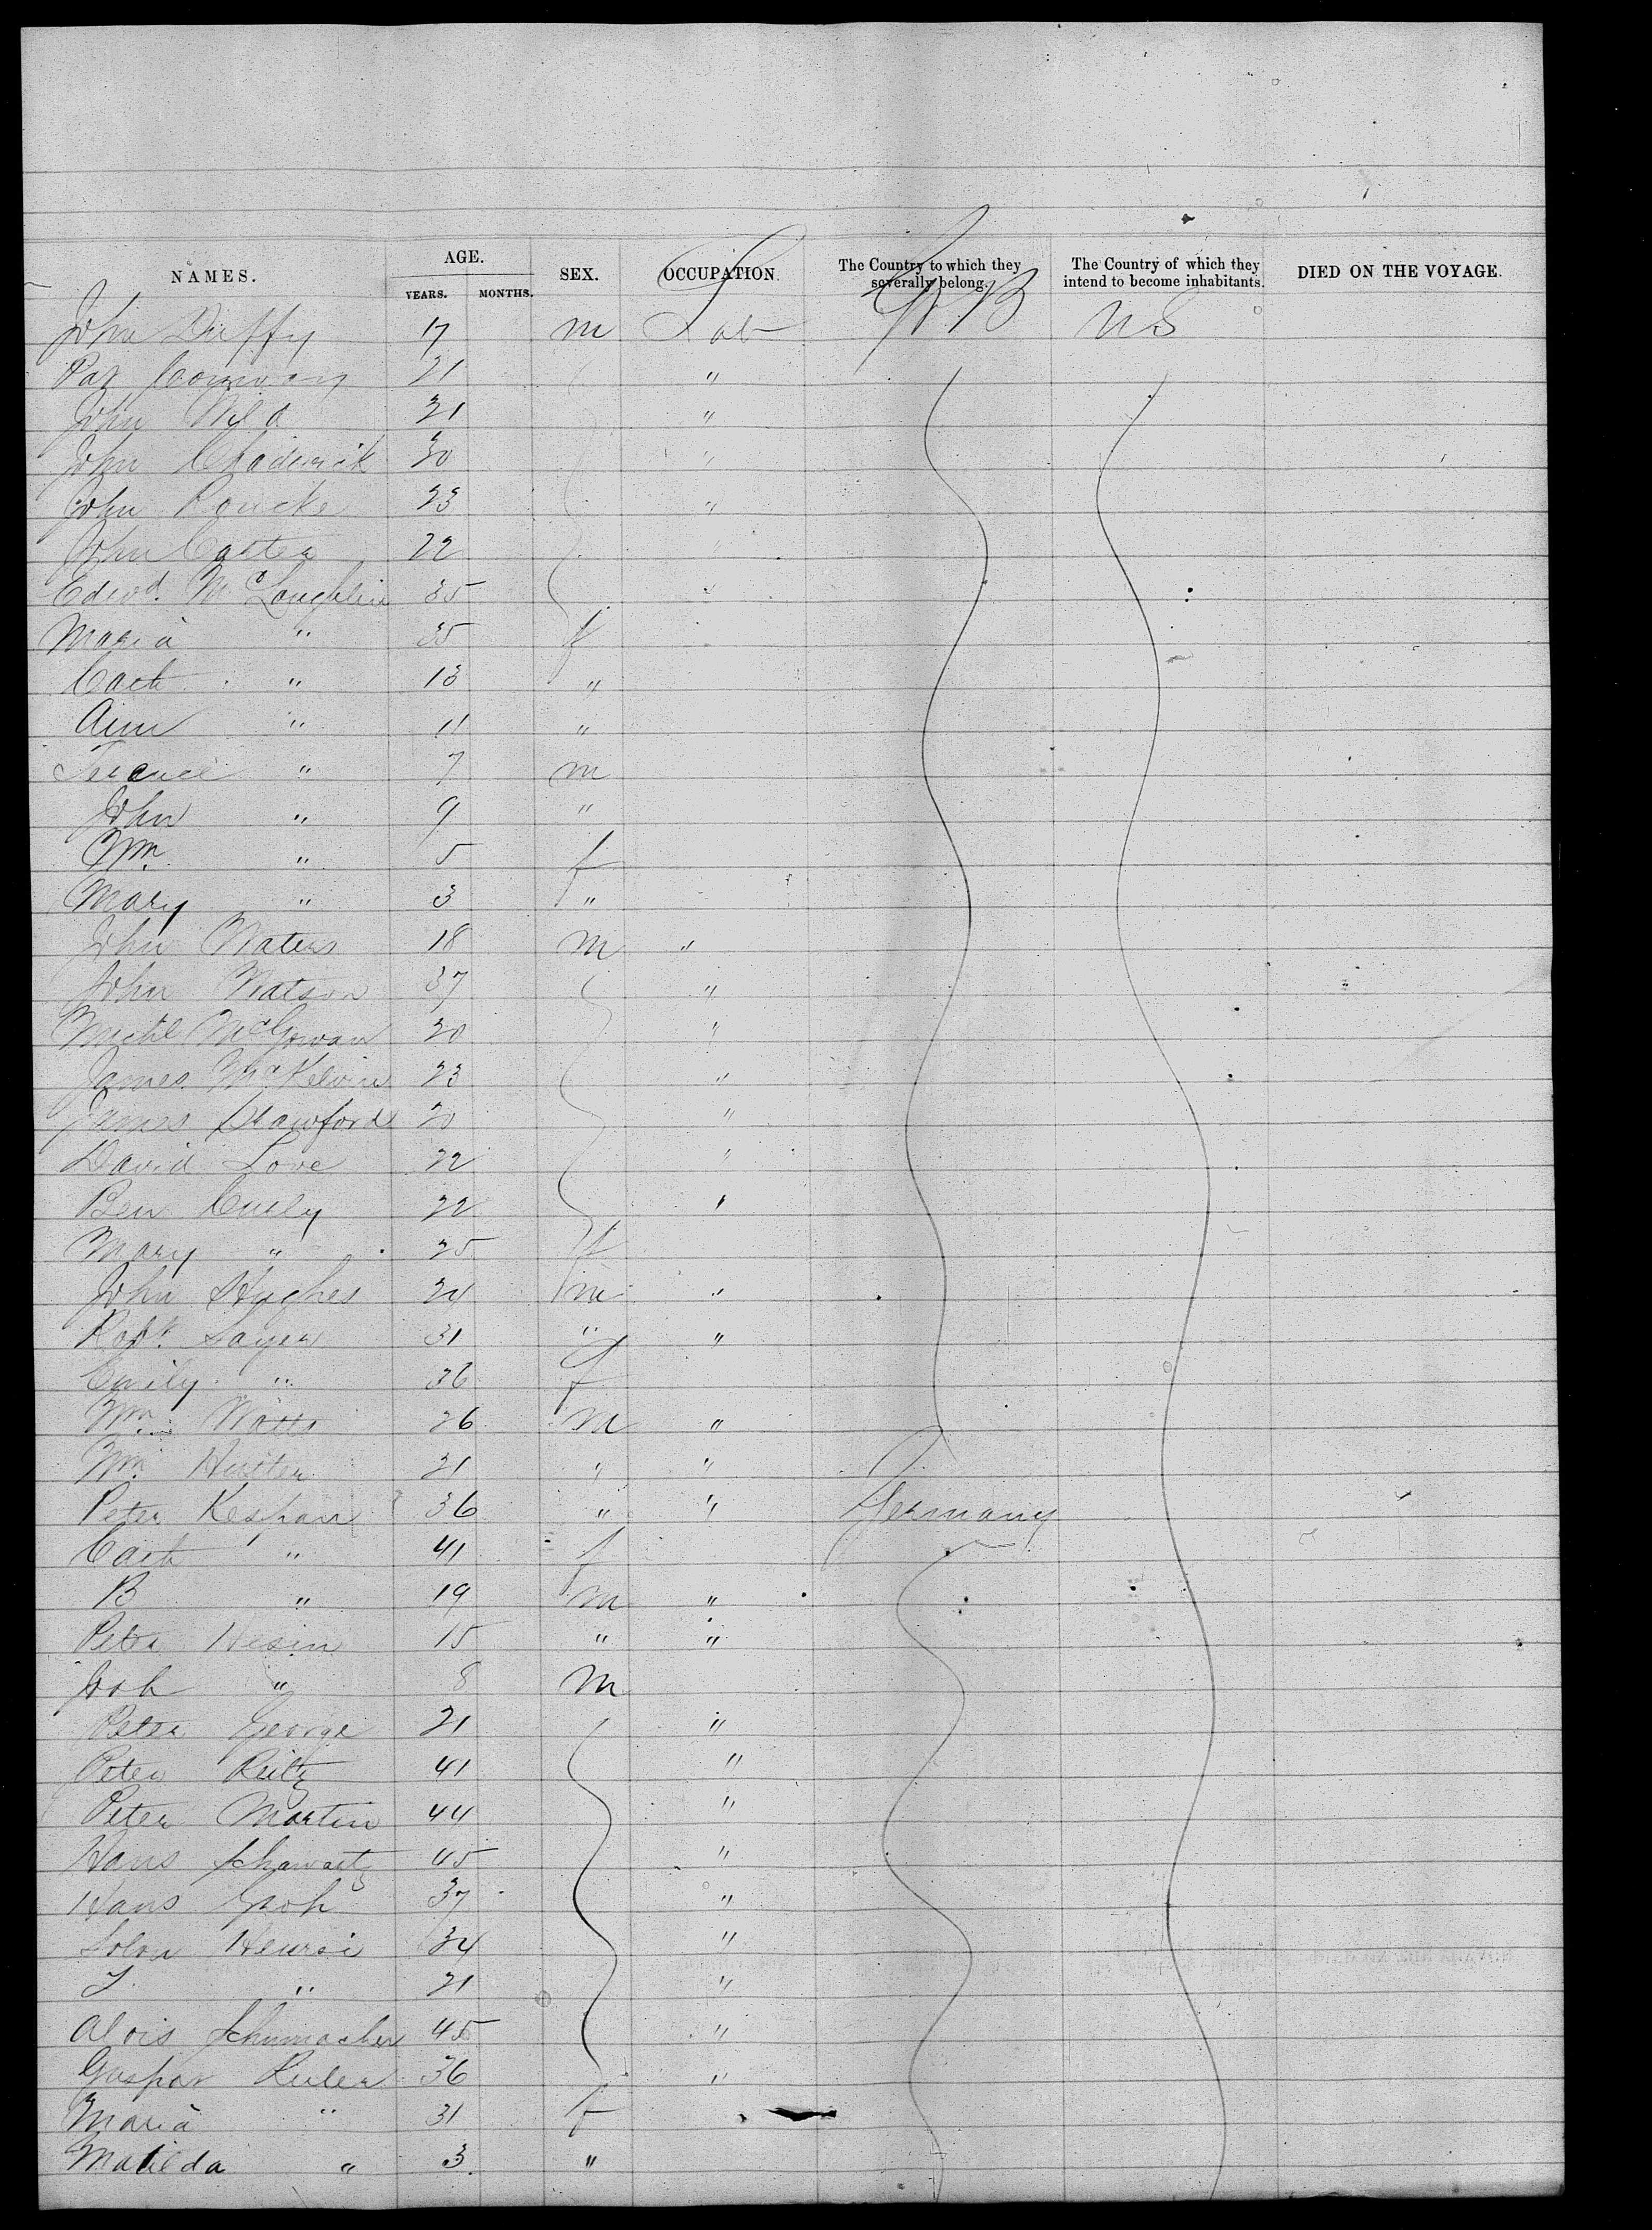 NAMES. AGE. SEX. OCCUPATION. The Country to which they severally belong. The Country of which they intend to become inhabitants. DIED ON THE VOYAGE.
YEARS. MONTHS.
John Duffy 17 m Lab Gt B US
Pat Conway 21 "
John Wild 21 "
John Chadwick 30 "
John Roucke 23 "
John Carter 22 "
Edwd. McLaughlin 35 "
Maria " 35 f
Cath " 13 "
Ann " 11 "
Terence " 7 m
John " 9 "
Wm. " 5 f
Mary " 3 "
John Waters 18 m "
John Watson 37 "
Michl McGowan 20 "
James McKelvie 23 "
James Crawford 20 "
David Love 22 "
Ben Curly 22 "
Mary " 25 f
John Hughes 24 m "
Robt. Sayer 31 " "
Emily " 36 f
Wm. Watts 26 m "
Wm. Hutter 21 " "
Peter Keshan 36 " " Germany
Cath " 41 f
B " 19 m "
Peter Hesin 15 " "
Joh " 8 m
Peter George 21 "
Peter Reitz 41 "
Peter Martin 44 "
Hans Schwartz 45 "
Hans Groh 37 "
Henrei 34 "
" 21 "
Alois Schumacher 45 "
Gaspar Ruler 36 "
Maria " 31 f
Matilda " 3 "